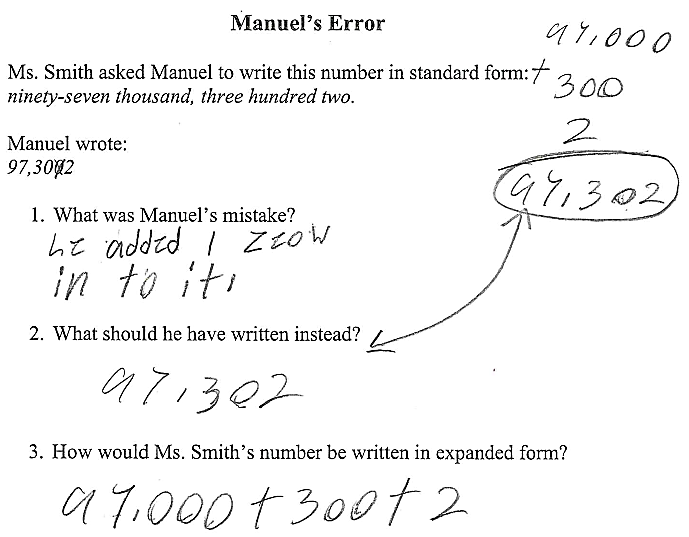 Manuel's Error
97,000
Ms. Smith asked Manuel to write this number in standard form: +
300
ninety-seven thousand, three hundred two.
2
Manuel wrote:
97,3002
97,302
1. What was Manuel's mistake?
he added 1 zeow
in to it.
2. What should he have written instead?
97,302
3. How would Ms. Smith's number be written in expanded form?
97,000 + 300 + 2